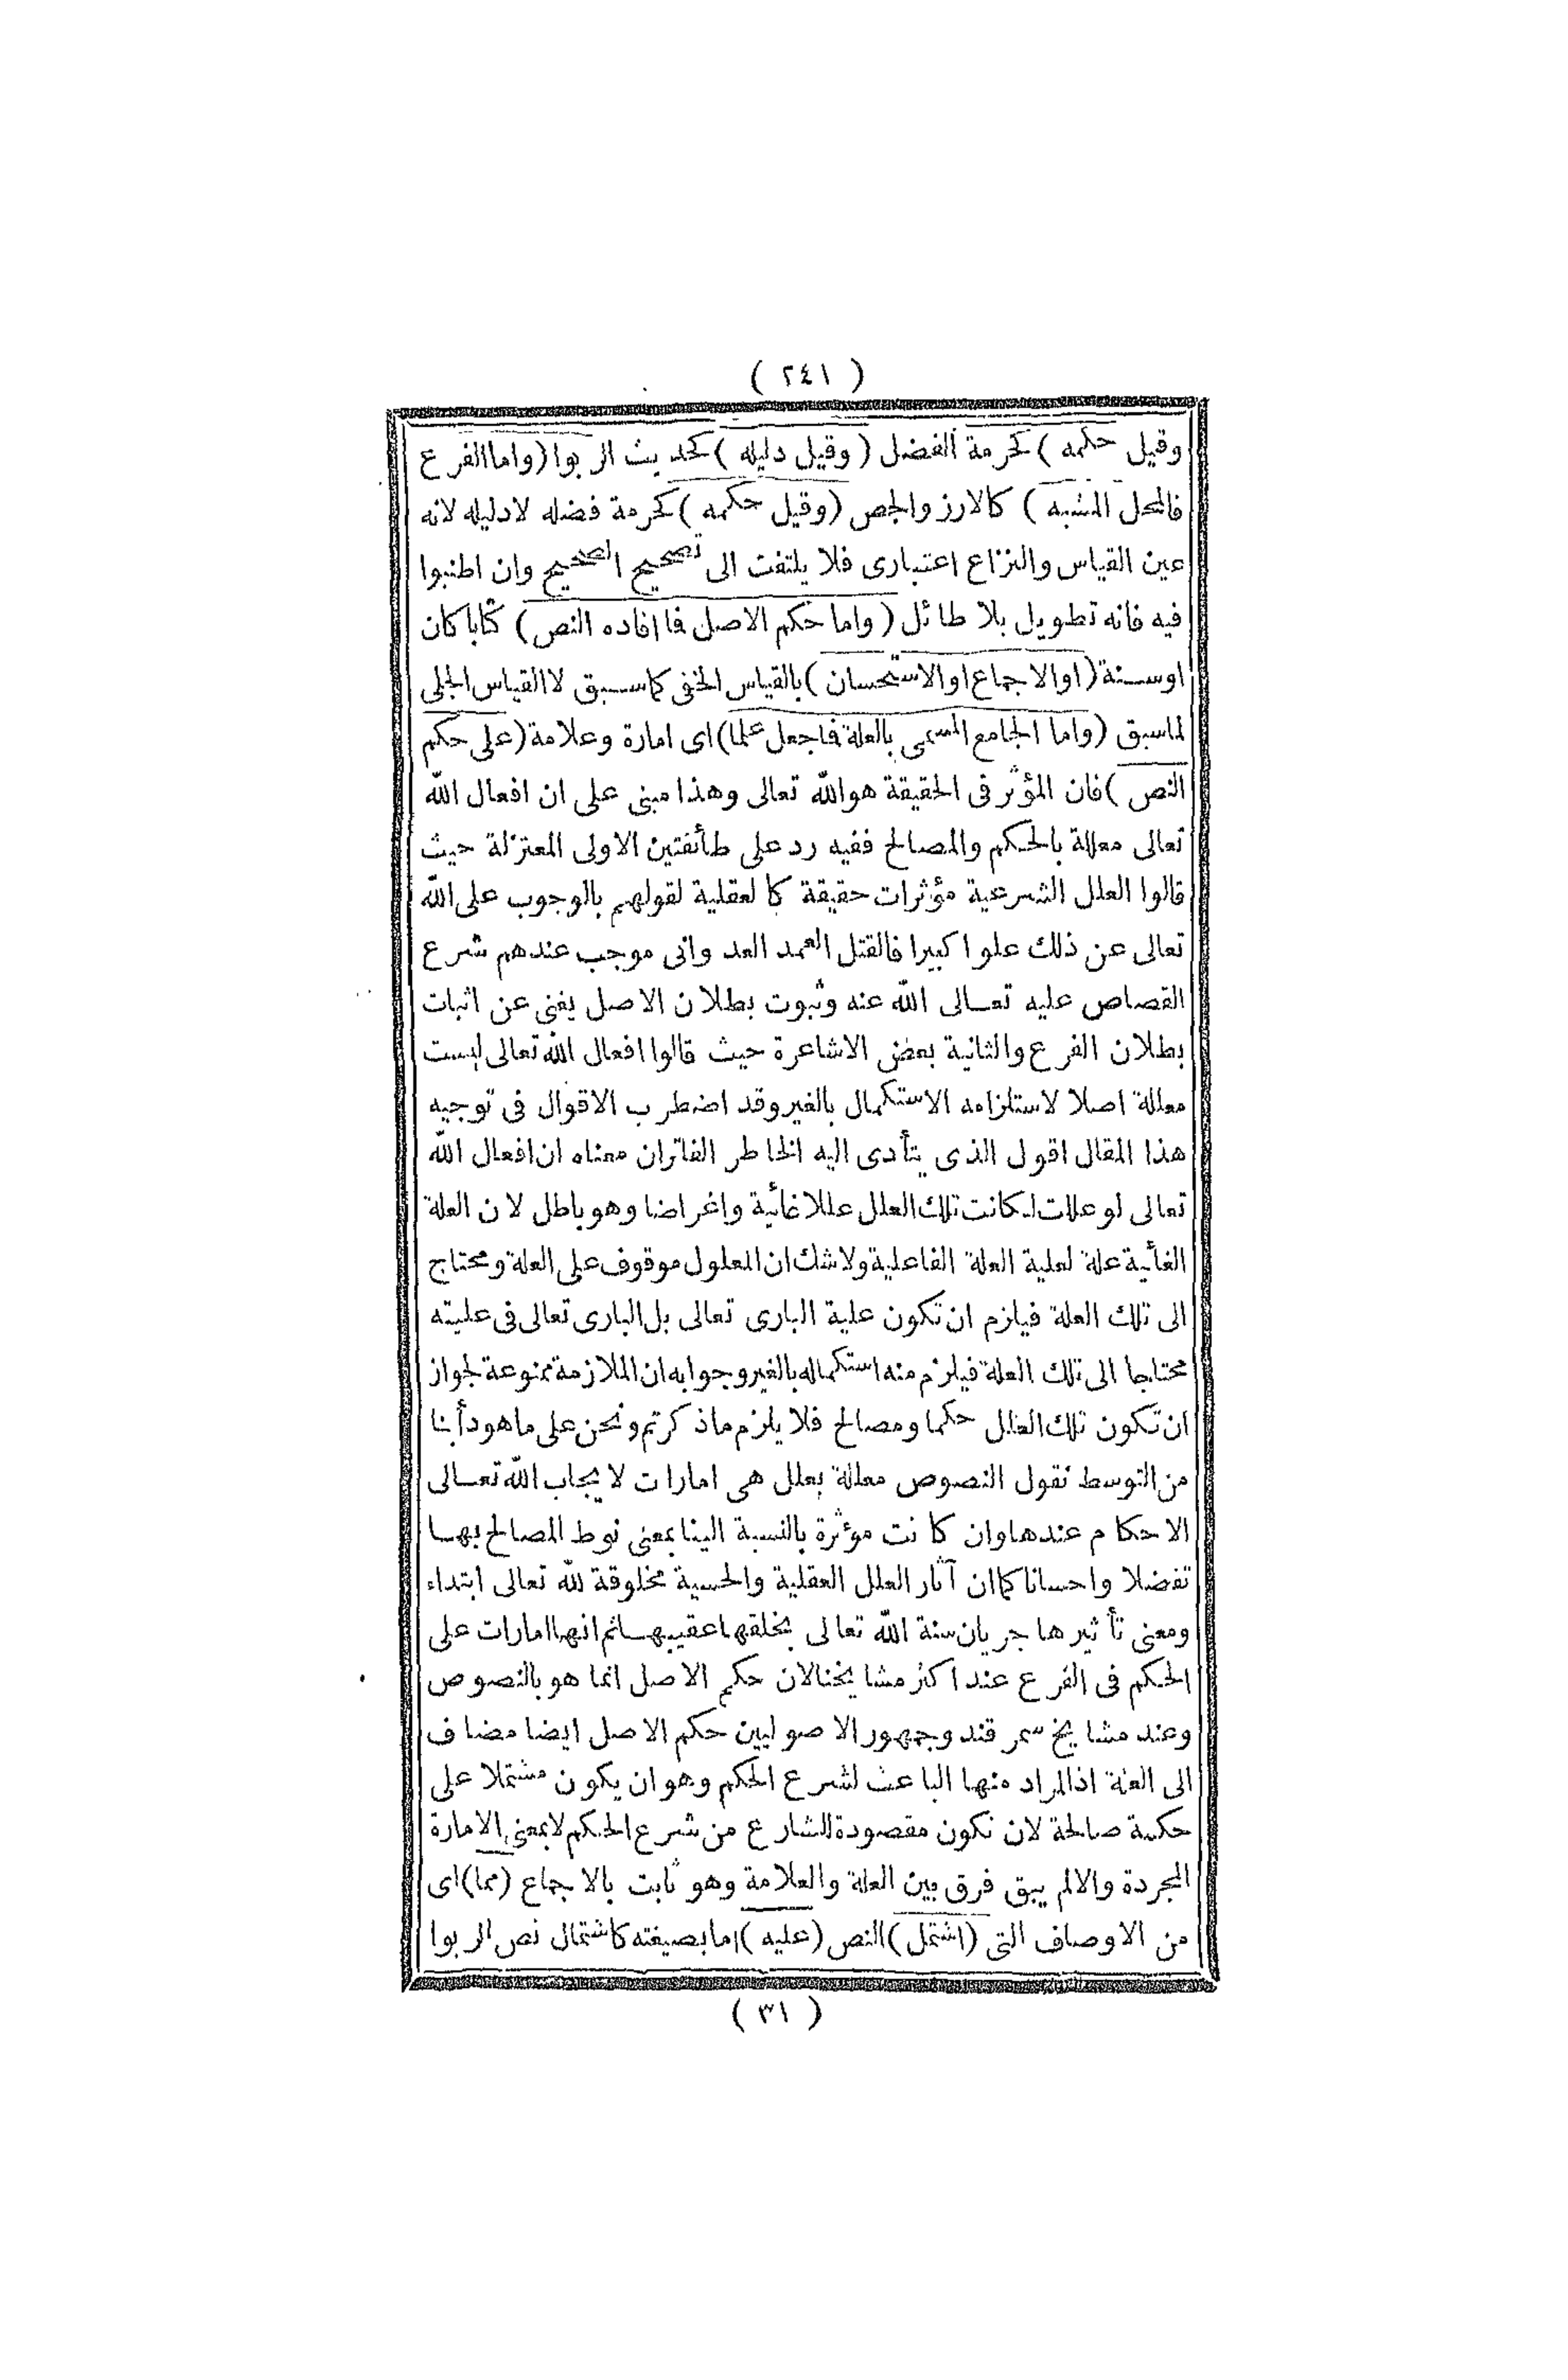 ( ٢٤١ )
وقيل حكمه ) كحرمة الفضل ( وقيل دليله ) كحديث الربوا ( واما الفرع
فالمحل المشبه ) كالارز والجص ( وقيل حكمه ) كحرمة فضله لا دليله لانه
عين القياس والنزاع اعتبارى فلا يلتفت الى تصحيح الصحيح وان اطنبوا
فيه فانه تطويل بلا طائل ( واما حكم الاصل فما افاده النص ) كتابا كان
او سنة ( او الاجماع او الاستحسان ) بالقياس الخفى كما سبق لا القياس الجلى
لما سبق ( واما الجامع المسمى بالعلة فما جعل علما ) اى امارة وعلامة ( على حكم
النص ) فان المؤثر فى الحقيقة هو الله تعالى وهذا مبنى على ان افعال الله
تعالى معللة بالحكم والمصالح ففيه رد على طائفتين الاولى المعتزلة حيث
قالوا العلل الشرعية مؤثرات حقيقة كالعقلية لقولهم بالوجوب على الله
تعالى عن ذلك علوا كبيرا فالقتل العمد العدوانى موجب عندهم شرع
القصاص عليه تعالى الله عنه وثبوت بطلان الاصل يغنى عن اثبات
بطلان الفرع والثانية بعض الاشاعرة حيث قالوا افعال الله تعالى ليست
معللة اصلا لاستلزامه الاستكمال بالغير وقد اضطرب الاقوال فى توجيه
هذا المقال اقول الذى يتأدى اليه الخاطر الفاتر ان معناه ان افعال الله
تعالى لو عللت لكانت تلك العلل عللا غائية واغراضا وهو باطل لان العلة
الغائية علة لعلية العلة الفاعلية ولا شك ان المعلول موقوف على العلة ومحتاج
الى تلك العلة فيلزم ان تكون علية البارى تعالى بل البارى تعالى فى عليته
محتاجا الى تلك العلة فيلزم منه استكماله بالغير وجوابه ان الملازمة ممنوعة لجواز
ان تكون تلك العلل حكما ومصالح فلا يلزم ما ذكرتم ونحن على ما هو دأبنا
من التوسط نقول النصوص معللة بعلل هى امارات لايجاب الله تعالى
الاحكام عندها وان كانت مؤثرة بالنسبة الينا بمعنى نوط المصالح بها
تفضلا واحسانا كما ان آثار العلل العقلية والحسية مخلوقة لله تعالى ابتداء
ومعنى تأثيرها جريان سنة الله تعالى بخلقها عقيبها ثم انها امارات على
الحكم فى الفرع عند اكثر مشايخنا لان حكم الاصل انما هو بالنصوص
وعند مشايخ سمرقند وجمهور الاصوليين حكم الاصل ايضا مضاف
الى العلة اذ المراد منها الباعث لشرع الحكم وهو ان يكون مشتملا على
حكمة صالحة لان تكون مقصودة للشارع من شرع الحكم لا بمعنى الامارة
المجردة والا لم يبق فرق بين العلة والعلامة وهو ثابت بالاجماع ( مما ) اى
من الاوصاف التى ( اشتمل ) النص ( عليه ) اما بصيغته كاشتمال نص الربوا
( ٣١ )